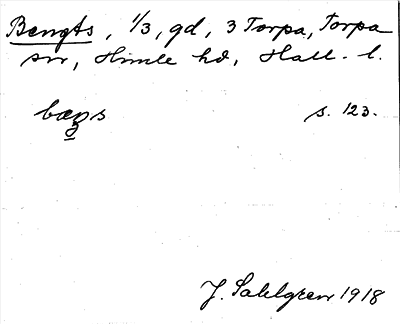 Bengts, 1/3, gd, 3 Torpa, Torpa
sn, Himle hd, Hall. l.
bæŋs s. 123.
J. Sahlgren 1918